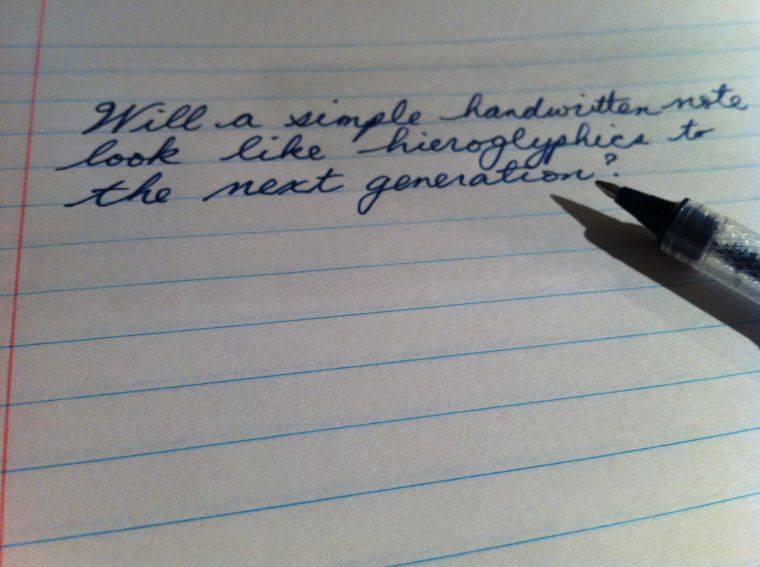 Will a simple handwritten note
look like hieroglyphics to
the next generation?